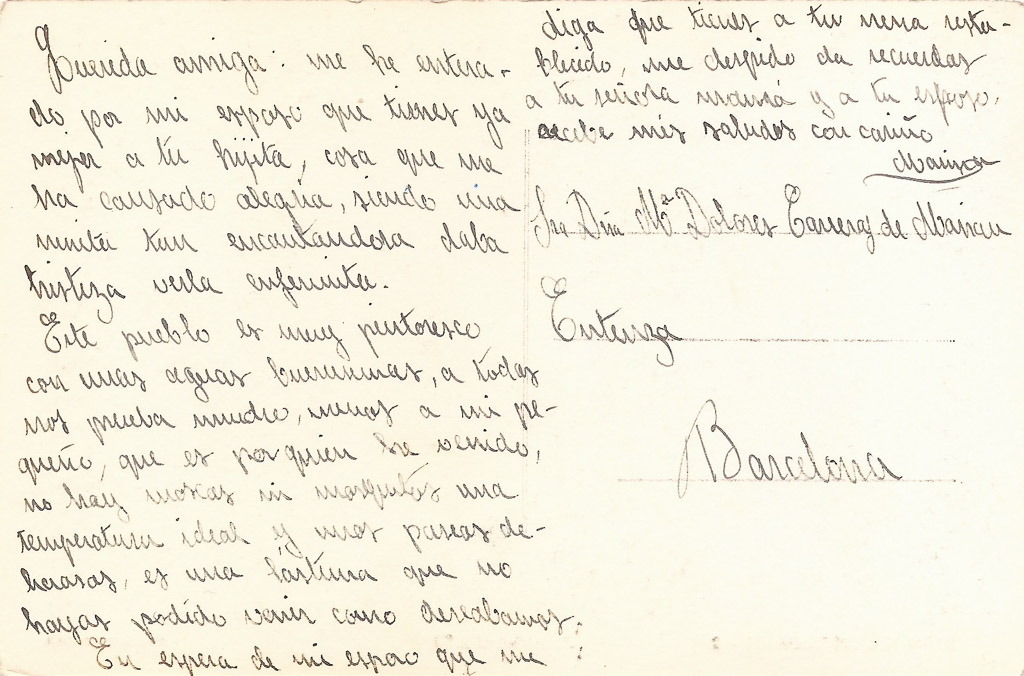 Querida amiga: me he entera-
do por mi esposo que tienes ya
mejor a tu hijita, cosa que me
ha causado alegria, siendo una
niñita tan encantandora daba
tristeza verla enfermita.
Este pueblo es muy pintoresco
con unas aguas buenisimas, a todos
nos prueba mucho, menos a mi pe-
queño, que es por quien he venido,
no hay moscas ni mosquitos una
temperatura ideal y unos paseos de-
liciosos, es una lástima que no
hayas podido venir como deseabamos.
En espera de mi esposo que me
diga que tienes a tu nena resta-
blecido, me despido da recuerdos
a tu señora mamá y a tu esposo,
recibe mis saludos con cariño
Sra Dña Mª Dolores de
Entenza
Barcelona